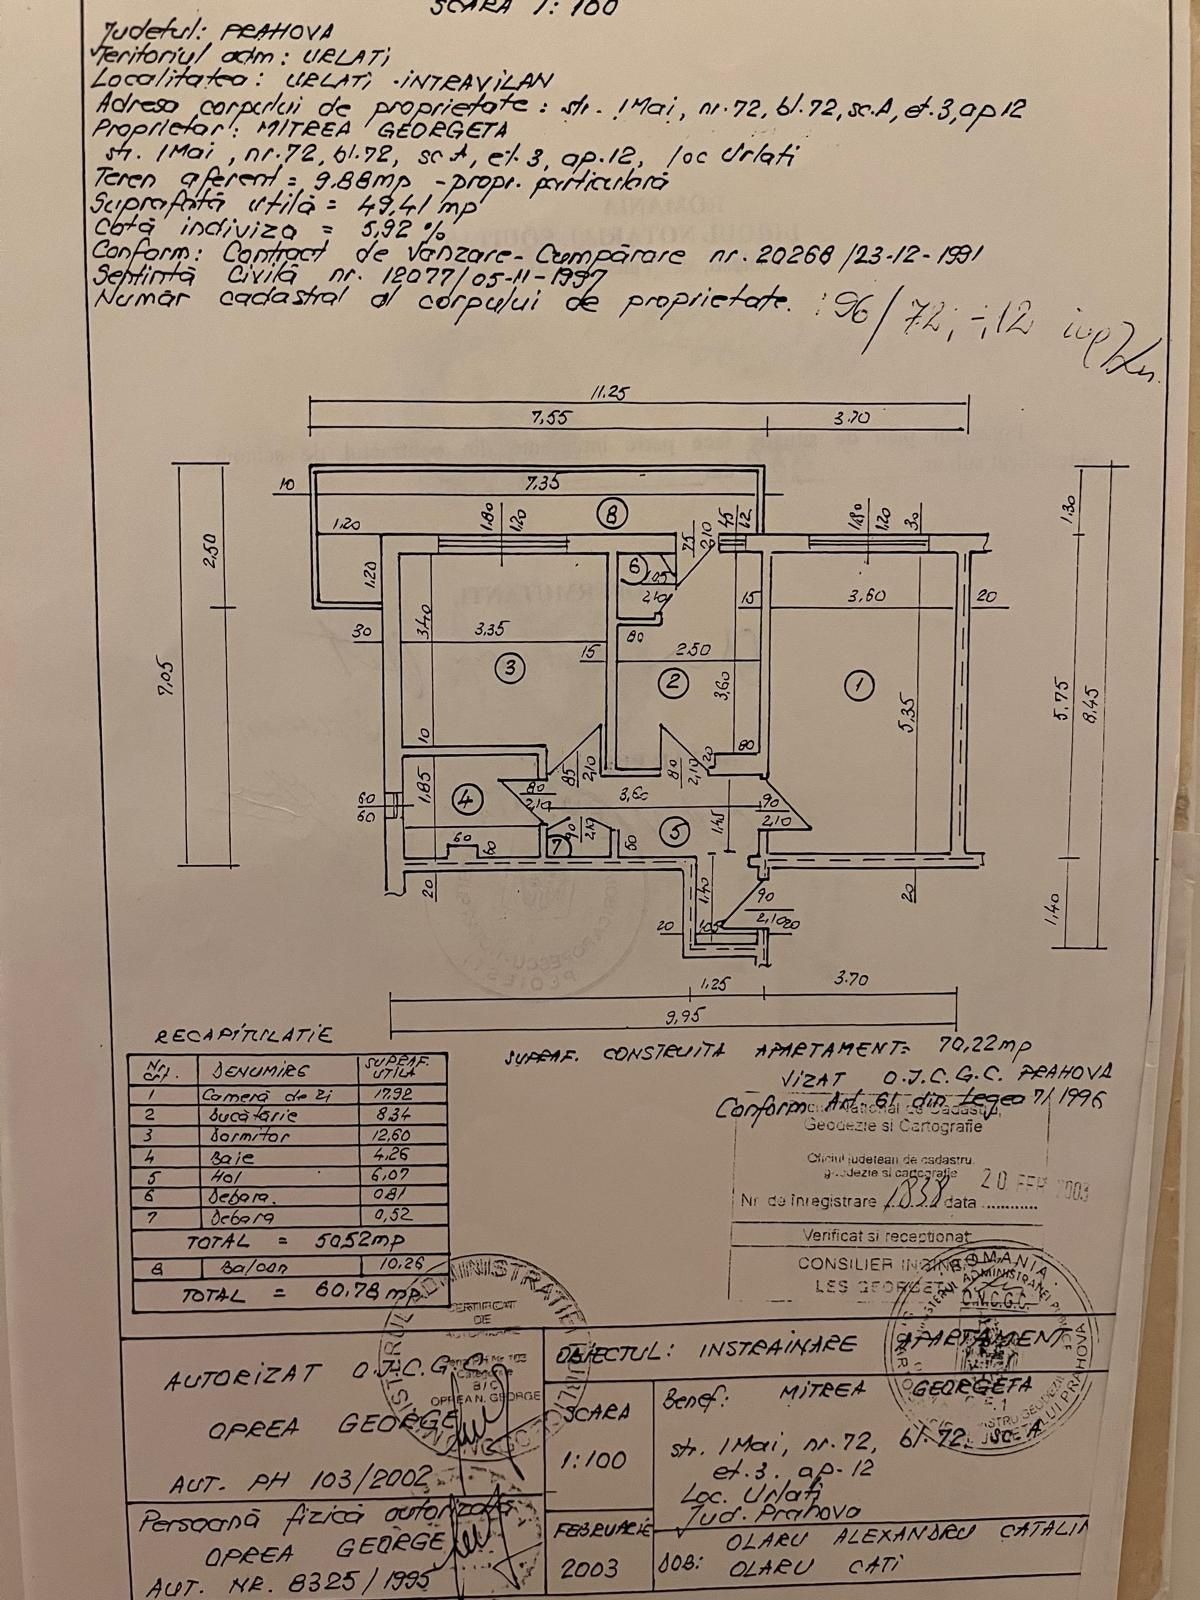 SCARA 1:100
Judetul: PRAHOVA
Teritoriul adm: URLATI
Localitatea: URLATI -INTRAVILAN
Adresa corpului de proprietate: str. 1 Mai, nr. 72, bl. 72, sc. A, et. 3, ap 12
Proprietar: MITREA GEORGETA
str. 1 Mai, nr. 72, bl. 72, sc A, et. 3, ap. 12, loc Urlati
Teren aferent = 9.88mp - propr. particulară
Suprafată utilă = 49,41 mp
Cotă indiviza = 5,92 %
Conform: Contract de Vanzare-Cumpărare nr. 20268/23-12-1991
Sentintă Civilă nr. 12077/05-11-1997
Număr cadastral al corpului de proprietate. : 96/72; -;12
11.25
7,55 3.70
10 7.35
1.20 1.80 1.20 8 75 2,10 45 12 1.80 1.20 30 1.30
2,50 1.20 6 1.05 2,10 15 3.60 20
30 3.40 3.35 15 80 2.50
7,05 3 2 3,60 1 5,35 5.75 8,45
10 85 2,10 80 2,10 20 80
60 60 1,85 4 80 2,10 3,60 90 2,10
60 60 7 90 2,10 60 5 1,45
20 1,40 90 2,10 20 20 1,40
20 1.05
1,25 3.70
9,95
RECAPITULATIE
SUPRAF. CONSTRUITA APARTAMENT= 70,22mp
VIZAT O.J.C.G.C. PRAHOVA
Conform Art. 61 din Legea 7/1996
Nr. crt. DENUMIRE SUPRAF. UTILA
1 Cameră de zi 17.92
2 Bucătărie 8.34
3 Dormitor 12,60
4 Baie 4.26
5 Hol 6,07
6 Debara. 0.81
7 Debara 0,52
TOTAL = 50,52mp
8 Balcon 10,26
TOTAL = 60,78 mp
National de Cadastru,
Geodezie si Cartografie
Oficiul judetean de cadastru,
geodezie si cartografie
Nr. de înregistrare 1838 data 20 FEB 2003
Verificat si receptionat
CONSILIER INGINER
LES GEORGETA
ROMANIA
O.J.C.G.C.
JUDETULUI PRAHOVA
CERTIFICAT
DE
AUTORIZARE
Seria PH Nr. 103
Categoria
B/C
OPREA N. GEORGE
AUTORIZAT O.J.C.G.C.
OPREA GEORGE
AUT. PH 103/2002
Persoană fizică autorizata
OPREA GEORGE
AUT. NR. 8325/1995
OBIECTUL: INSTRAINARE APARTAMENT
SCARA
1:100
FEBRUARIE
2003
Benef: MITREA GEORGETA
str. 1 Mai, nr. 72, bl. 72, sc A
et. 3. ap. 12
Loc. Urlati
Jud. Prahova
DOB: OLARU ALEXANDRU CATALIN
OLARU CATI